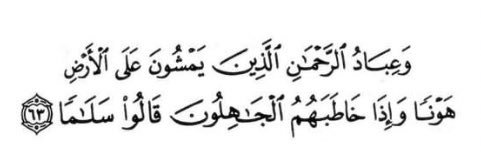 وَعِبَادُ الرَّحْمَٰنِ الَّذِينَ يَمْشُونَ عَلَى الْأَرْضِ
هَوْنًا وَإِذَا خَاطَبَهُمُ الْجَاهِلُونَ قَالُوا۟ سَلَامًا ۝٦٣